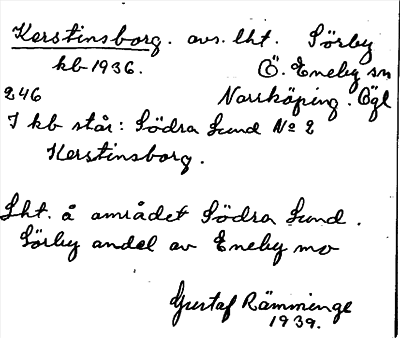 Kerstinsborg. avs. lht. Sörby
kb 1936. Ö. Eneby sn
246 Norrköping. Ögl
I kb står: Södra Sund No 2
Kerstinsborg.
Lht. å området Södra Sund.
Sörby andel av Eneby mo
Gustaf Rämminge
1939.